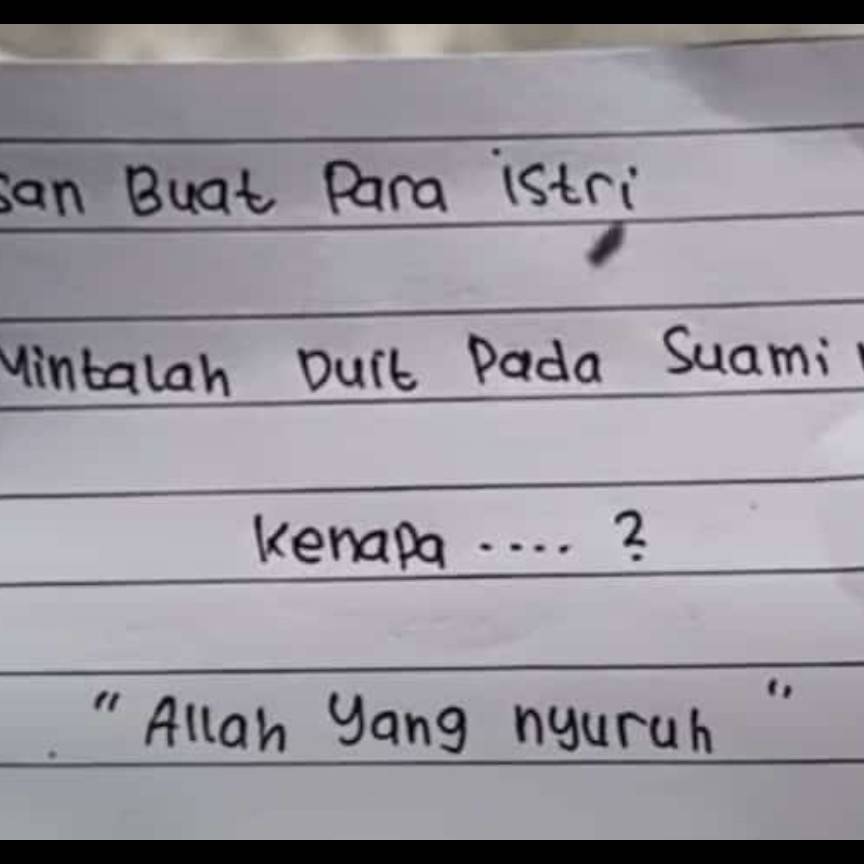 san Buat Para istri
Mintalah Duit Pada Suami
Kenapa .... ?
" Allah yang nyuruh "